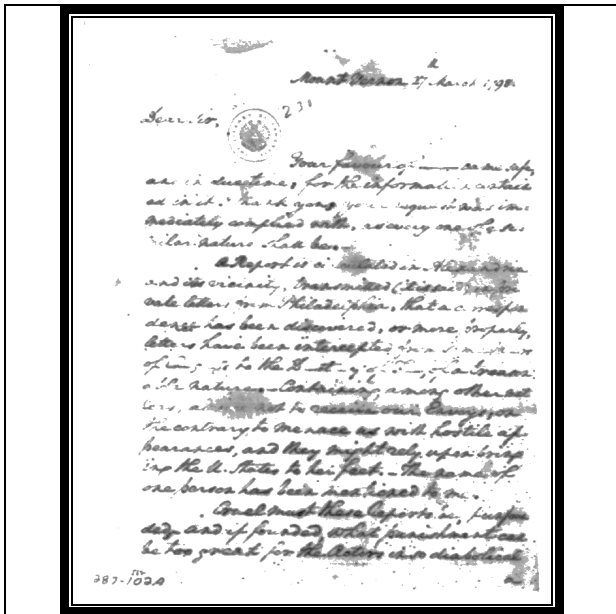 Mount Vernon 27 March 1798
231
Dear Sir,
Your favour of came safe,
and in due time, for the information contain
ed in it I thank you, your request was im
mediately complied with, as every one of a si
milar nature shall be.—
A Report is circulated in Alexandria
and its vicinity, transmitted (it is said) in pri
vate letters from Philadelphia, that a correspon
dence has been discovered, or more properly,
letters have been intercepted from
of to the of a treason
able nature.— Containing among other mat
ters, not to receive our Envoys; on
the contrary to menace us with hostile ap
pearances, and they might rely upon bring
ing the U. States to her feet.— The name of
one person has been mentioned to me.
Cruel must these reports be,
and if founded, what punishment can
be too great for the Actors in so diabolical
a
287-102A